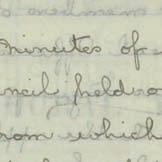 minutes of
ncil held on
rom which